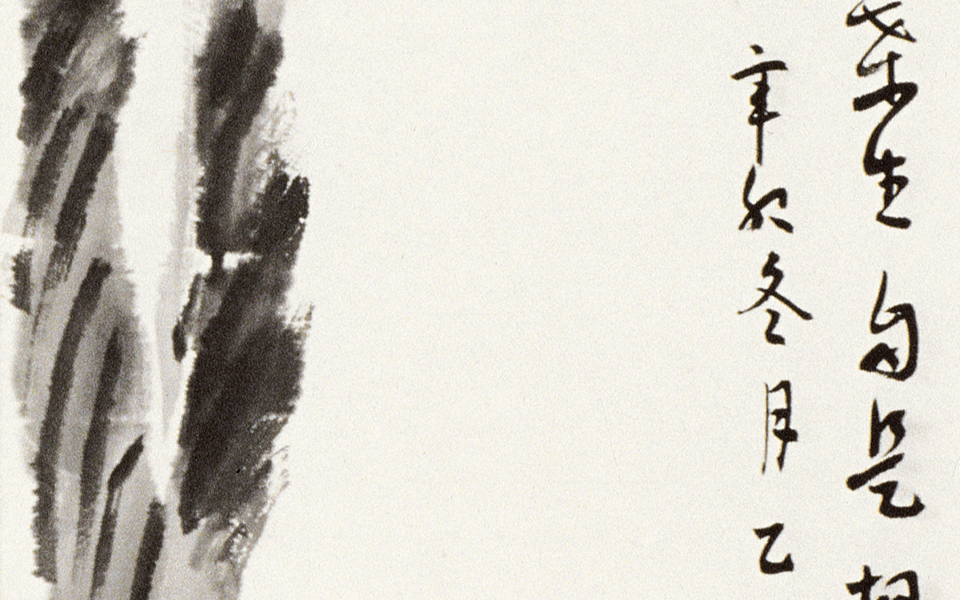 生自是
辛卯冬月乙